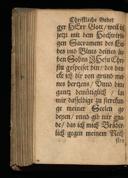 Christliche Gebet
ger HErr Gott / weil ich
jetzt mit dem Hochwirdi-
gen Sacrament des Lei-
bes und Bluts deines lie-
ben Sohns JEsu Chri-
sti gespeiset bin / des dan-
cke ich dir von grund mei-
nes hertzens / Und
gantz demütiglich /
mir dasselbige zu
meiner Seelen
/ und gib mir gna-
de / das ich mich
lich gegen meinen Nech-
sten